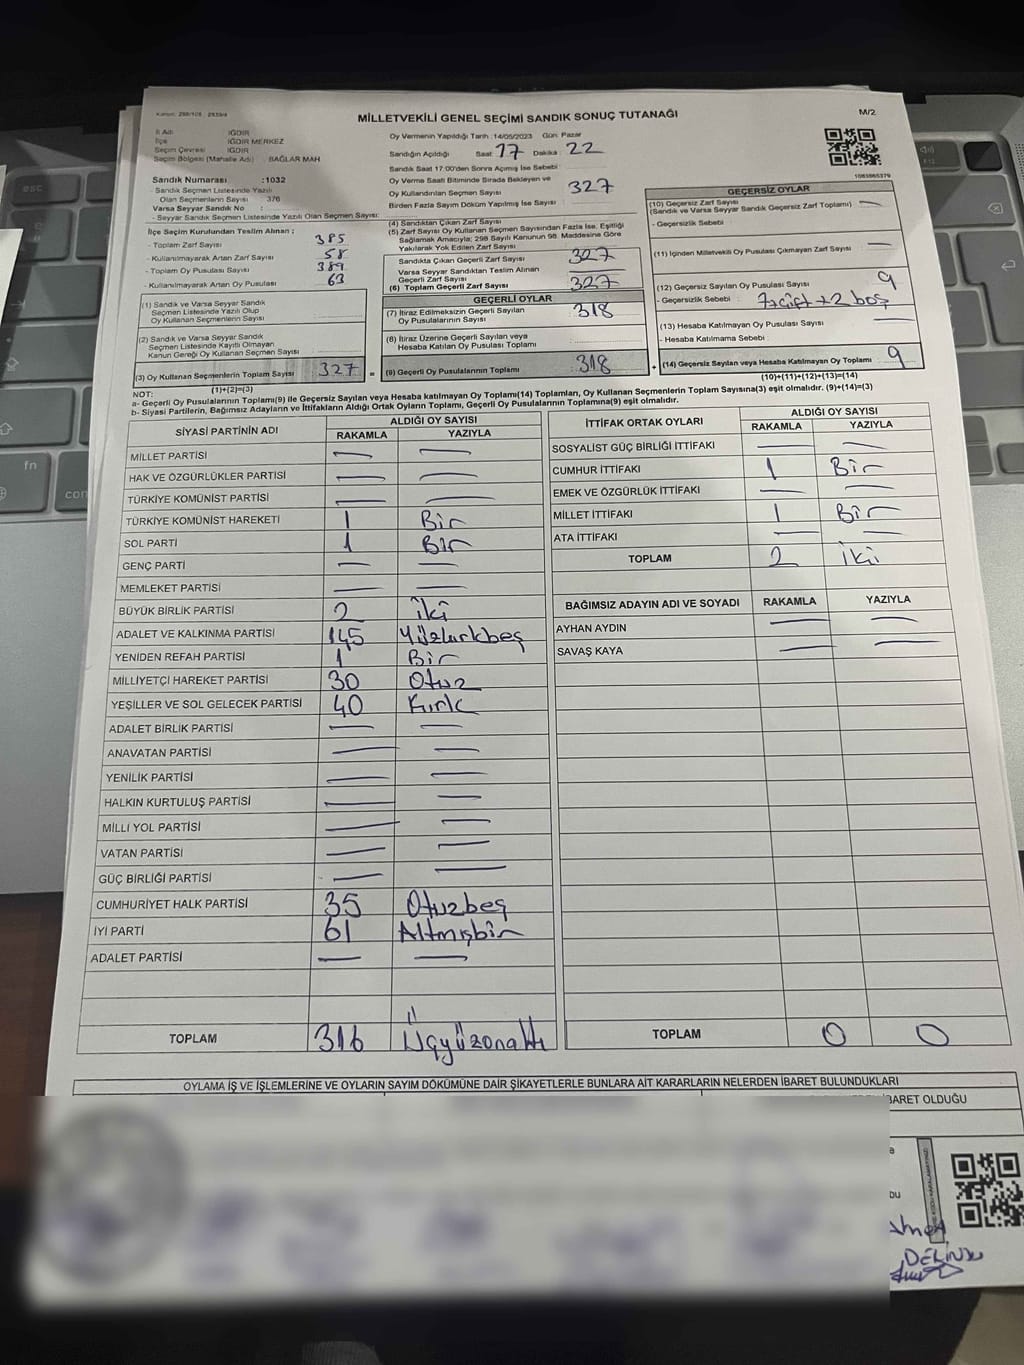 MİLLETVEKİLİ GENEL SEÇİMİ SANDIK SONUÇ TUTANAĞI
M/2
İl Adı IĞDIR
İlçe IĞDIR MERKEZ
Seçim Çevresi IĞDIR
Seçim Bölgesi (Mahalle Adı) BAĞLAR MAH
Sandık Numarası :1032
- Sandık Seçmen Listesinde Yazılı
Olan Seçmenlerin Sayısı 376
Varsa Seyyar Sandık No :
- Seyyar Sandık Seçmen Listesinde Yazılı Olan Seçmen Sayısı:
İlçe Seçim Kurulundan Teslim Alınan ;
- Toplam Zarf Sayısı 385
- Kullanılmayarak Artan Zarf Sayısı 58
- Toplam Oy Pusulası Sayısı 389
- Kullanılmayarak Artan Oy Pusulası 63
(1) Sandık ve Varsa Seyyar Sandık
Seçmen Listesinde Yazılı Olup
Oy Kullanan Seçmenlerin Sayısı
(2) Sandık ve Varsa Seyyar Sandık
Seçmen Listesinde Kayıtlı Olmayan
Kanun Gereği Oy Kullanan Seçmen Sayısı
(3) Oy Kullanan Seçmenlerin Toplam Sayısı 327
(1)+(2)=(3)
Oy Vermenin Yapıldığı Tarih :14/05/2023 Gün: Pazar
Sandığın Açıldığı Saat 17 Dakika 22
Sandık Saat 17:00'den Sonra Açılmış İse Sebebi :
Oy Verme Saati Bitiminde Sırada Bekleyen ve
Oy Kullandırılan Seçmen Sayısı 327
Birden Fazla Sayım Döküm Yapılmış İse Sayısı :
(4) Sandıktan Çıkan Zarf Sayısı
(5) Zarf Sayısı Oy Kullanan Seçmen Sayısından Fazla İse, Eşitliği
Sağlamak Amacıyla; 298 Sayılı Kanunun 98. Maddesine Göre
Yakılarak Yok Edilen Zarf Sayısı
Sandıkta Çıkan Geçerli Zarf Sayısı 327
Varsa Seyyar Sandıktan Teslim Alınan
Geçerli Zarf Sayısı
(6) Toplam Geçerli Zarf Sayısı 327
GEÇERLİ OYLAR
(7) İtiraz Edilmeksizin Geçerli Sayılan
Oy Pusulalarının Sayısı 318
(8) İtiraz Üzerine Geçerli Sayılan veya
Hesaba Katılan Oy Pusulası Toplamı
= (9) Geçerli Oy Pusulalarının Toplamı 318
1083865379
GEÇERSİZ OYLAR
(10) Geçersiz Zarf Sayısı —
(Sandık ve Varsa Seyyar Sandık Geçersiz Zarf Toplamı)
- Geçersizlik Sebebi :
(11) İçinden Milletvekili Oy Pusulası Çıkmayan Zarf Sayısı —
(12) Geçersiz Sayılan Oy Pusulası Sayısı 9
- Geçersizlik Sebebi : 7 çift + 2 boş
(13) Hesaba Katılmayan Oy Pusulası Sayısı —
- Hesaba Katılmama Sebebi :
+ (14) Geçersiz Sayılan veya Hesaba Katılmayan Oy Toplamı 9
(10)+(11)+(12)+(13)=(14)
NOT:
a- Geçerli Oy Pusulalarının Toplamı(9) ile Geçersiz Sayılan veya Hesaba katılmayan Oy Toplamı(14) Toplamları, Oy Kullanan Seçmenlerin Toplam Sayısına(3) eşit olmalıdır. (9)+(14)=(3)
b- Siyasi Partilerin, Bağımsız Adayların ve İttifakların Aldığı Ortak Oyların Toplamı, Geçerli Oy Pusulalarının Toplamına(9) eşit olmalıdır.
SİYASİ PARTİNİN ADI ALDIĞI OY SAYISI
RAKAMLA YAZIYLA
MİLLET PARTİSİ — —
HAK VE ÖZGÜRLÜKLER PARTİSİ — —
TÜRKİYE KOMÜNİST PARTİSİ — —
TÜRKİYE KOMÜNİST HAREKETİ 1 Bir
SOL PARTİ 1 Bir
GENÇ PARTİ — —
MEMLEKET PARTİSİ — —
BÜYÜK BİRLİK PARTİSİ 2 İki
ADALET VE KALKINMA PARTİSİ 145 Yüzkırkbeş
YENİDEN REFAH PARTİSİ 1 Bir
MİLLİYETÇİ HAREKET PARTİSİ 30 Otuz
YEŞİLLER VE SOL GELECEK PARTİSİ 40 Kırk
ADALET BİRLİK PARTİSİ — —
ANAVATAN PARTİSİ — —
YENİLİK PARTİSİ — —
HALKIN KURTULUŞ PARTİSİ — —
MİLLİ YOL PARTİSİ — —
VATAN PARTİSİ — —
GÜÇ BİRLİĞİ PARTİSİ — —
CUMHURİYET HALK PARTİSİ 35 Otuzbeş
İYİ PARTİ 61 Altmışbir
ADALET PARTİSİ — —
TOPLAM 316 Üçyüzonaltı
İTTİFAK ORTAK OYLARI ALDIĞI OY SAYISI
RAKAMLA YAZIYLA
SOSYALİST GÜÇ BİRLİĞİ İTTİFAKI — —
CUMHUR İTTİFAKI 1 Bir
EMEK VE ÖZGÜRLÜK İTTİFAKI — —
MİLLET İTTİFAKI 1 Bir
ATA İTTİFAKI — —
TOPLAM 2 İki
BAĞIMSIZ ADAYIN ADI VE SOYADI RAKAMLA YAZIYLA
AYHAN AYDIN — —
SAVAŞ KAYA — —
TOPLAM 0 0
OYLAMA İŞ VE İŞLEMLERİNE VE OYLARIN SAYIM DÖKÜMÜNE DAİR ŞİKAYETLERLE BUNLARA AİT KARARLARIN NELERDEN İBARET BULUNDUKLARI
BARET OLDUĞU
esc
fn